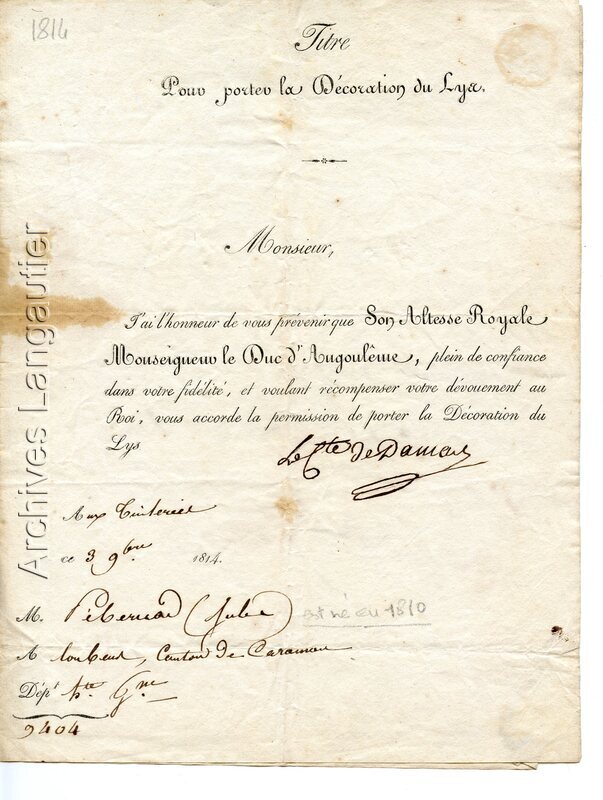 1814
Titre
Pour porter la Décoration du Lys.
Monsieur,
J'ai l'honneur de vous prévenir que Son Altesse Royale
Monseigneur le Duc d'Angoulême, plein de confiance
dans votre fidélité, et voulant récompenser votre dévouement au
Roi, vous accorde la permission de porter la Décoration du
Lys
Le Cte de Damas
Aux Tuileries
ce 3 9bre 1814.
M. Pébernad (Jules) est né en 1810
A Loubens, Canton de Caraman
Dépt hte Gne
9404
Archives Langautier